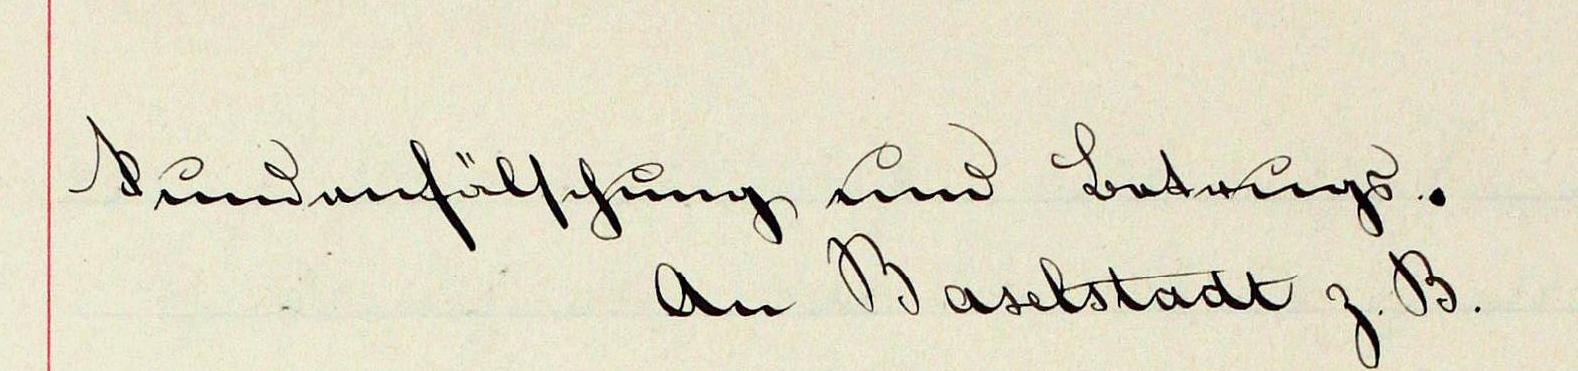 kundenfälschung und Betrugs.
An Baselstadt z. B.